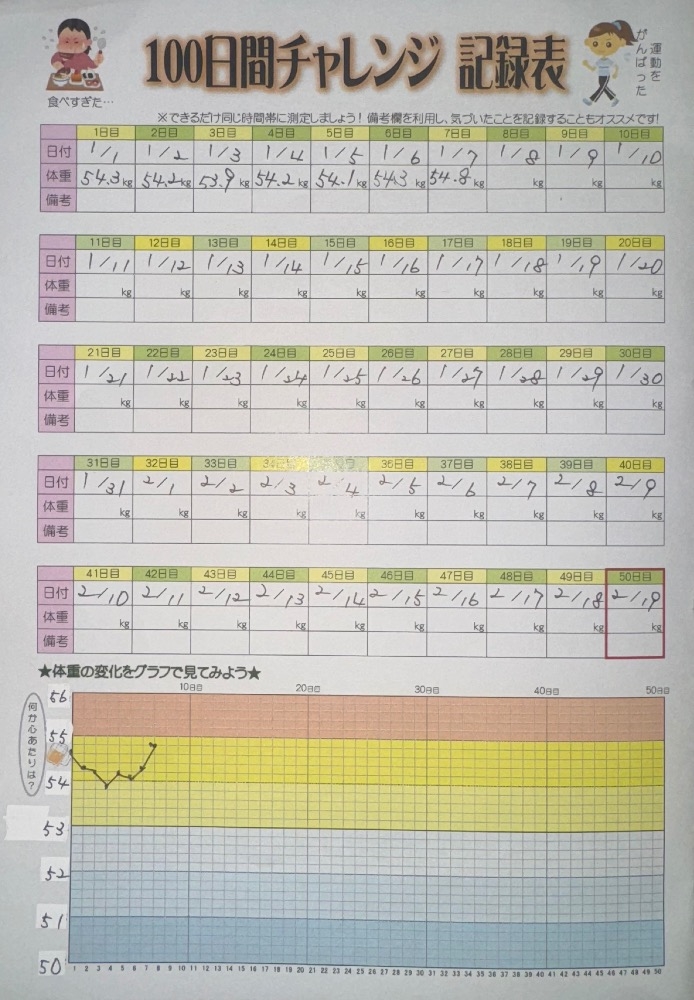 100日間チャレンジ 記録表
食べすぎた…
運動を
がんばった
※できるだけ同じ時間帯に測定しましょう！備考欄を利用し、気づいたことを記録することもオススメです！
1日目 2日目 3日目 4日目 5日目 6日目 7日目 8日目 9日目 10日目
日付 1/1 1/2 1/3 1/4 1/5 1/6 1/7 1/8 1/9 1/10
体重 54.3kg 54.2kg 53.9kg 54.2kg 54.1kg 54.3kg 54.8kg kg kg kg
備考
11日目 12日目 13日目 14日目 15日目 16日目 17日目 18日目 19日目 20日目
日付 1/11 1/12 1/13 1/14 1/15 1/16 1/17 1/18 1/19 1/20
体重 kg kg kg kg kg kg kg kg kg kg
備考
21日目 22日目 23日目 24日目 25日目 26日目 27日目 28日目 29日目 30日目
日付 1/21 1/22 1/23 1/24 1/25 1/26 1/27 1/28 1/29 1/30
体重 kg kg kg kg kg kg kg kg kg kg
備考
31日目 32日目 33日目 34日目 36日目 37日目 38日目 39日目 40日目
日付 1/31 2/1 2/2 2/3 2/4 2/5 2/6 2/7 2/8 2/9
体重 kg kg kg kg kg kg kg kg kg kg
備考
41日目 42日目 43日目 44日目 45日目 46日目 47日目 48日目 49日目 50日目
日付 2/10 2/11 2/12 2/13 2/14 2/15 2/16 2/17 2/18 2/19
体重 kg kg kg kg kg kg kg kg kg kg
備考
★体重の変化をグラフで見てみよう★
10日目 20日目 30日目 40日目 50日目
何か心あたりは？
56
55
54
53
52
51
50
1 2 3 4 5 6 7 8 9 10 11 12 13 14 15 16 17 18 19 20 21 22 23 24 25 26 27 28 29 30 31 32 33 34 35 36 37 38 39 40 41 42 43 44 45 46 47 48 49 50